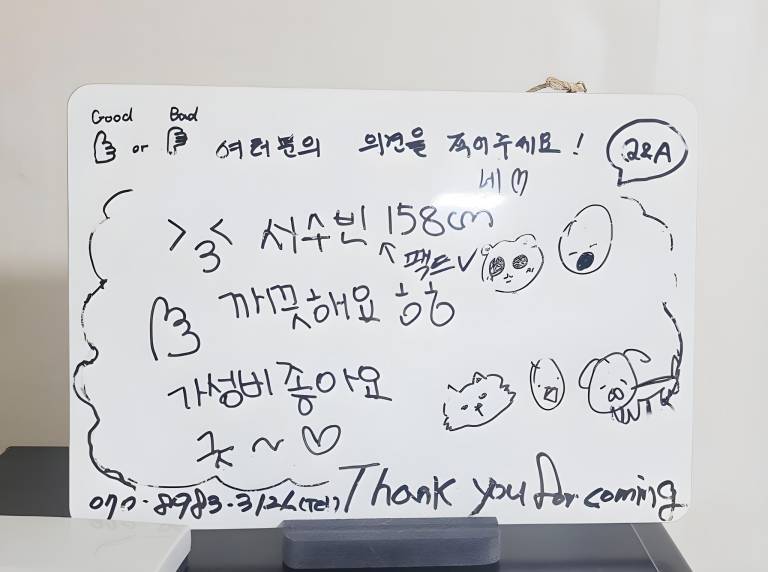 Good or Bad 여러분의 의견을 적어주세요! Q&A
네♡
>3< 서수빈 158cm
↖ 팩트✓
깨끗해요 ㅎㅎ
가성비 좋아요
굿~♡
Thank you for coming
(Tel)